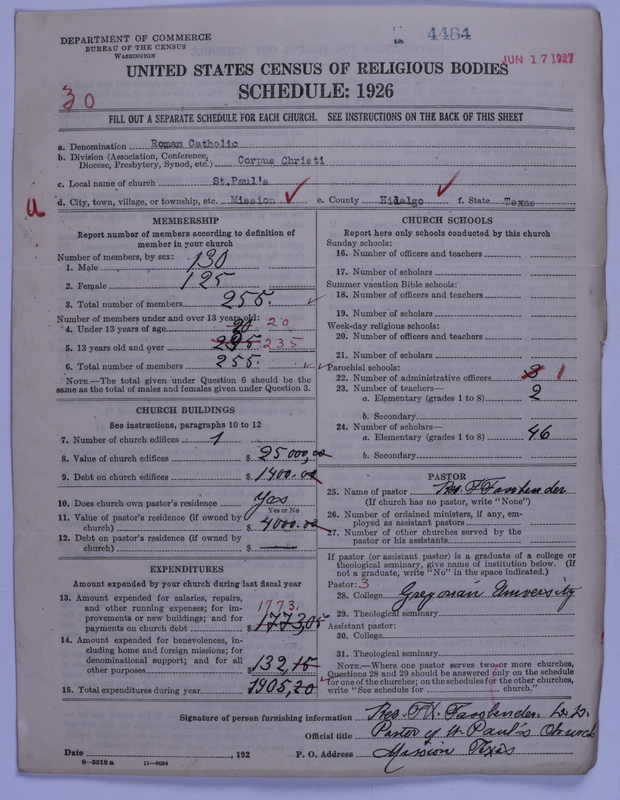 DEPARTMENT OF COMMERCE
BUREAU OF THE CENSUS
WASHINGTON
4484
JUN 17 1927
UNITED STATES CENSUS OF RELIGIOUS BODIES
SCHEDULE: 1926
30
FILL OUT A SEPARATE SCHEDULE FOR EACH CHURCH. SEE INSTRUCTIONS ON THE BACK OF THIS SHEET
a. Denomination Roman Catholic
b. Division (Association, Conference, Diocese, Presbytery, Synod, etc.) Corpus Christi
c. Local name of church St.Paul's
d. City, town, village, or township, etc. Mission e. County Hidalgo f. State Texas
MEMBERSHIP
Report number of members according to definition of
member in your church
Number of members, by sex:
1. Male 130
2. Female 125
3. Total number of members 255.
Number of members under and over 13 years old:
4. Under 13 years of age 20 20
5. 13 years old and over 235 235
6. Total number of members 255.
NOTE.—The total given under Question 6 should be
same as the total of males and females given under Question 3.
CHURCH BUILDINGS
See instructions, paragraphs 10 to 12
7. Number of church edifices 1
8. Value of church edifices $ 25000,00
9. Debt on church edifices $ 1400.00
10. Does church own pastor's residence Yes
Yes or No
11. Value of pastor's residence (if owned by
church) $ 4000.00
12. Debt on pastor's residence (if owned by
church) $
EXPENDITURES
Amount expended by your church during last fiscal year
13. Amount expended for salaries, repairs,
and other running expenses; for im-
provements or new buildings; and for
payments on church debt $ 1773,05
1773.
14. Amount expended for benevolences, in-
cluding home and foreign missions; for
denominational support; and for all
other purposes $ 132,15
15. Total expenditures during year 1905,20
CHURCH SCHOOLS
Report here only schools conducted by this church
Sunday schools:
16. Number of officers and teachers
17. Number of scholars
Summer vacation Bible schools:
18. Number of officers and teachers
19. Number of scholars
Week-day religious schools:
20. Number of officers and teachers
21. Number of scholars
Parochial schools:
22. Number of administrative officers 3 1
23. Number of teachers—
a. Elementary (grades 1 to 8) 2
b. Secondary
24. Number of scholars—
a. Elementary (grades 1 to 8) 46
b. Secondary
PASTOR
25. Name of pastor Rev. F Fassbender
(If church has no pastor, write "None")
26. Number of ordained ministers, if any, em-
ployed as assistant pastors
27. Number of other churches served by the
pastor or his assistants
If pastor (or assistant pastor) is a graduate of a college or
theological seminary, give name of institution below. (If
not a graduate, write "No" in the space indicated.)
Pastor: 3
28. College Gregorian University
29. Theological seminary
Assistant pastor:
30. College
31. Theological seminary
NOTE.—Where one pastor serves two or more churches,
Questions 28 and 29 should be answered only on the schedule
for one of the churches; on the schedules for the other churches,
write "See schedule for church."
Signature of person furnishing information Rev. F. X. Fassbender.
Official title Pastor of St Paul's Church
Date , 192 P. O. Address Mission Texas
8—5518 a 11—9064